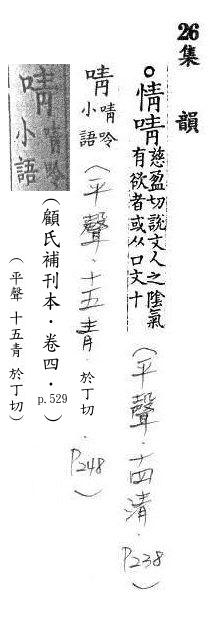 26集韻
。情啨慈盈切說文人之陰氣
有欲者或从口文十
(平聲·十四清·P.238)
啨啨呤
小語
(平聲·十五青·於丁切·P.248)
啨啨呤
小語
(顧氏補刊本·卷四·p.529)
(平聲 十五青 於丁切)